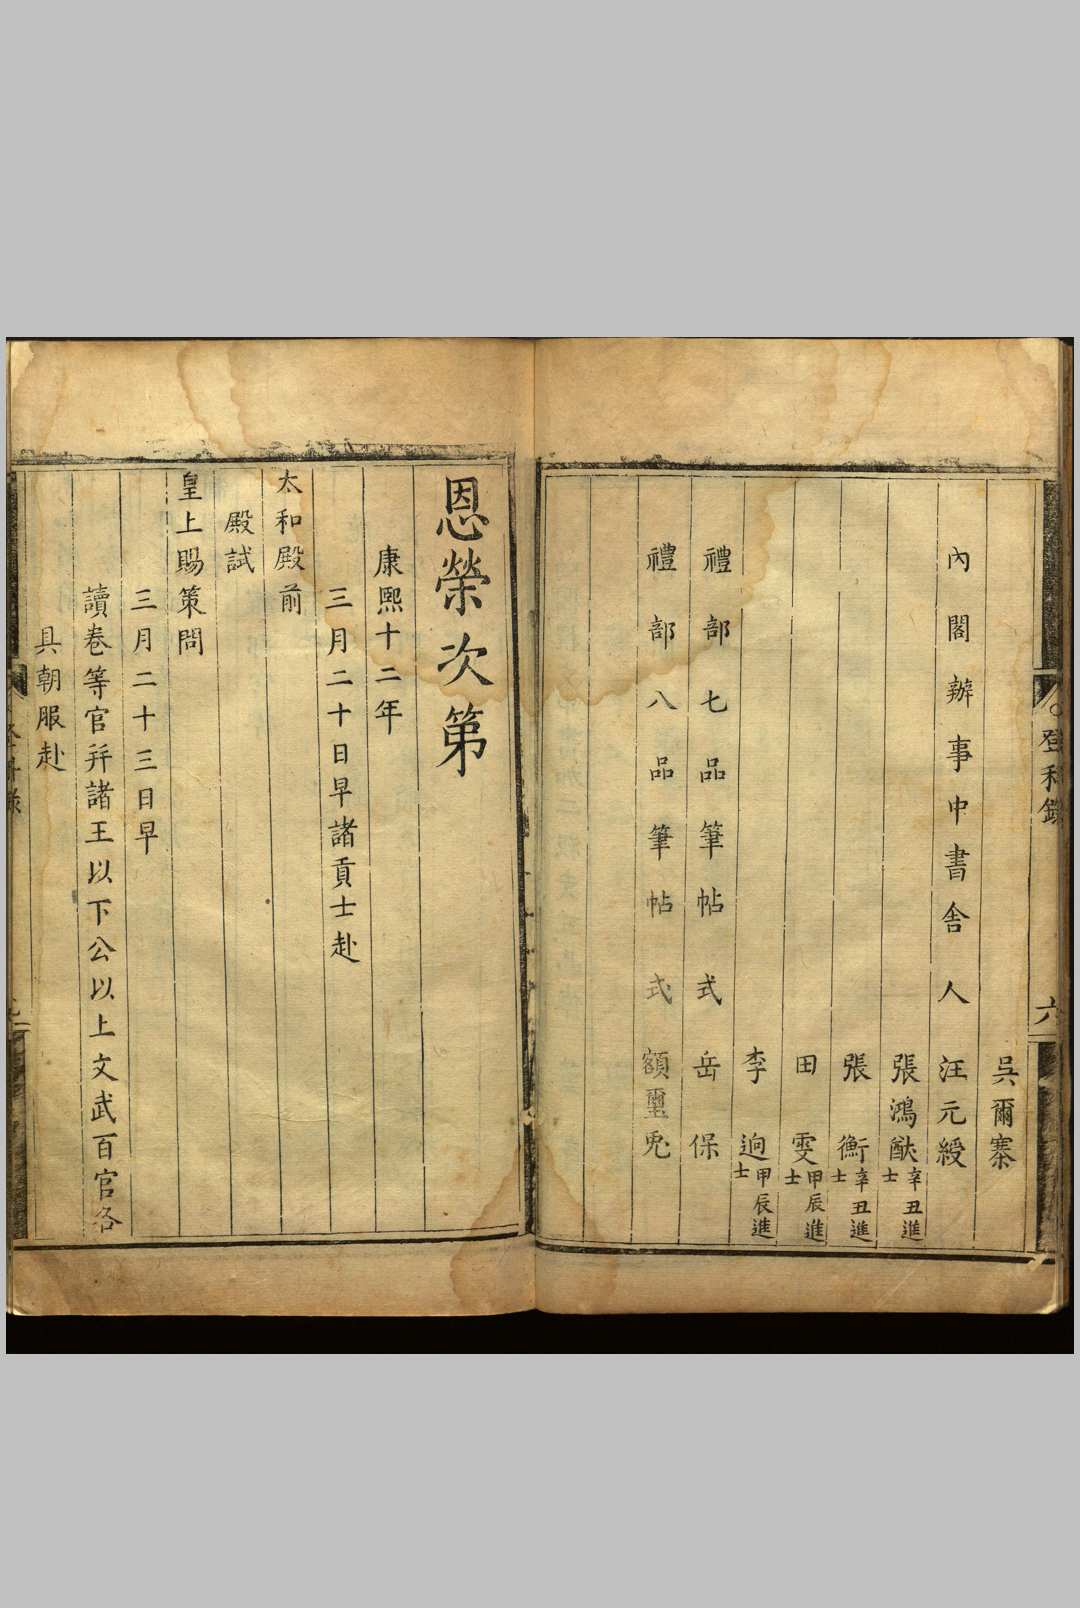 登科錄
六
吳爾寨
內閣辦事中書舍人 汪元綬
張鴻猷 辛丑進士
張衡 辛丑進士
田雯 甲辰進士
李迥 甲辰進士
禮部七品筆帖式 岳保
禮部八品筆帖式 額璽兎
恩榮次第
康熙十二年
三月二十日早諸貢士赴
太和殿前
殿試
皇上賜策問
三月二十三日早
讀卷等官并諸王以下公以上文武百官各
具朝服赴